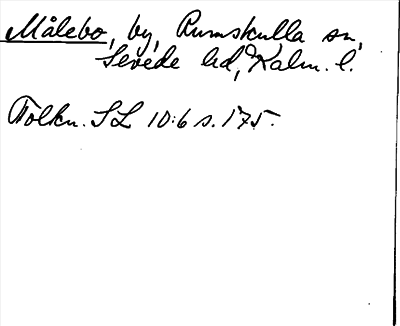 Målebo, by, Rumskulla sn,
Sevede hd, Kalm. l.
Tolkn. SL 10:6 s. 175.